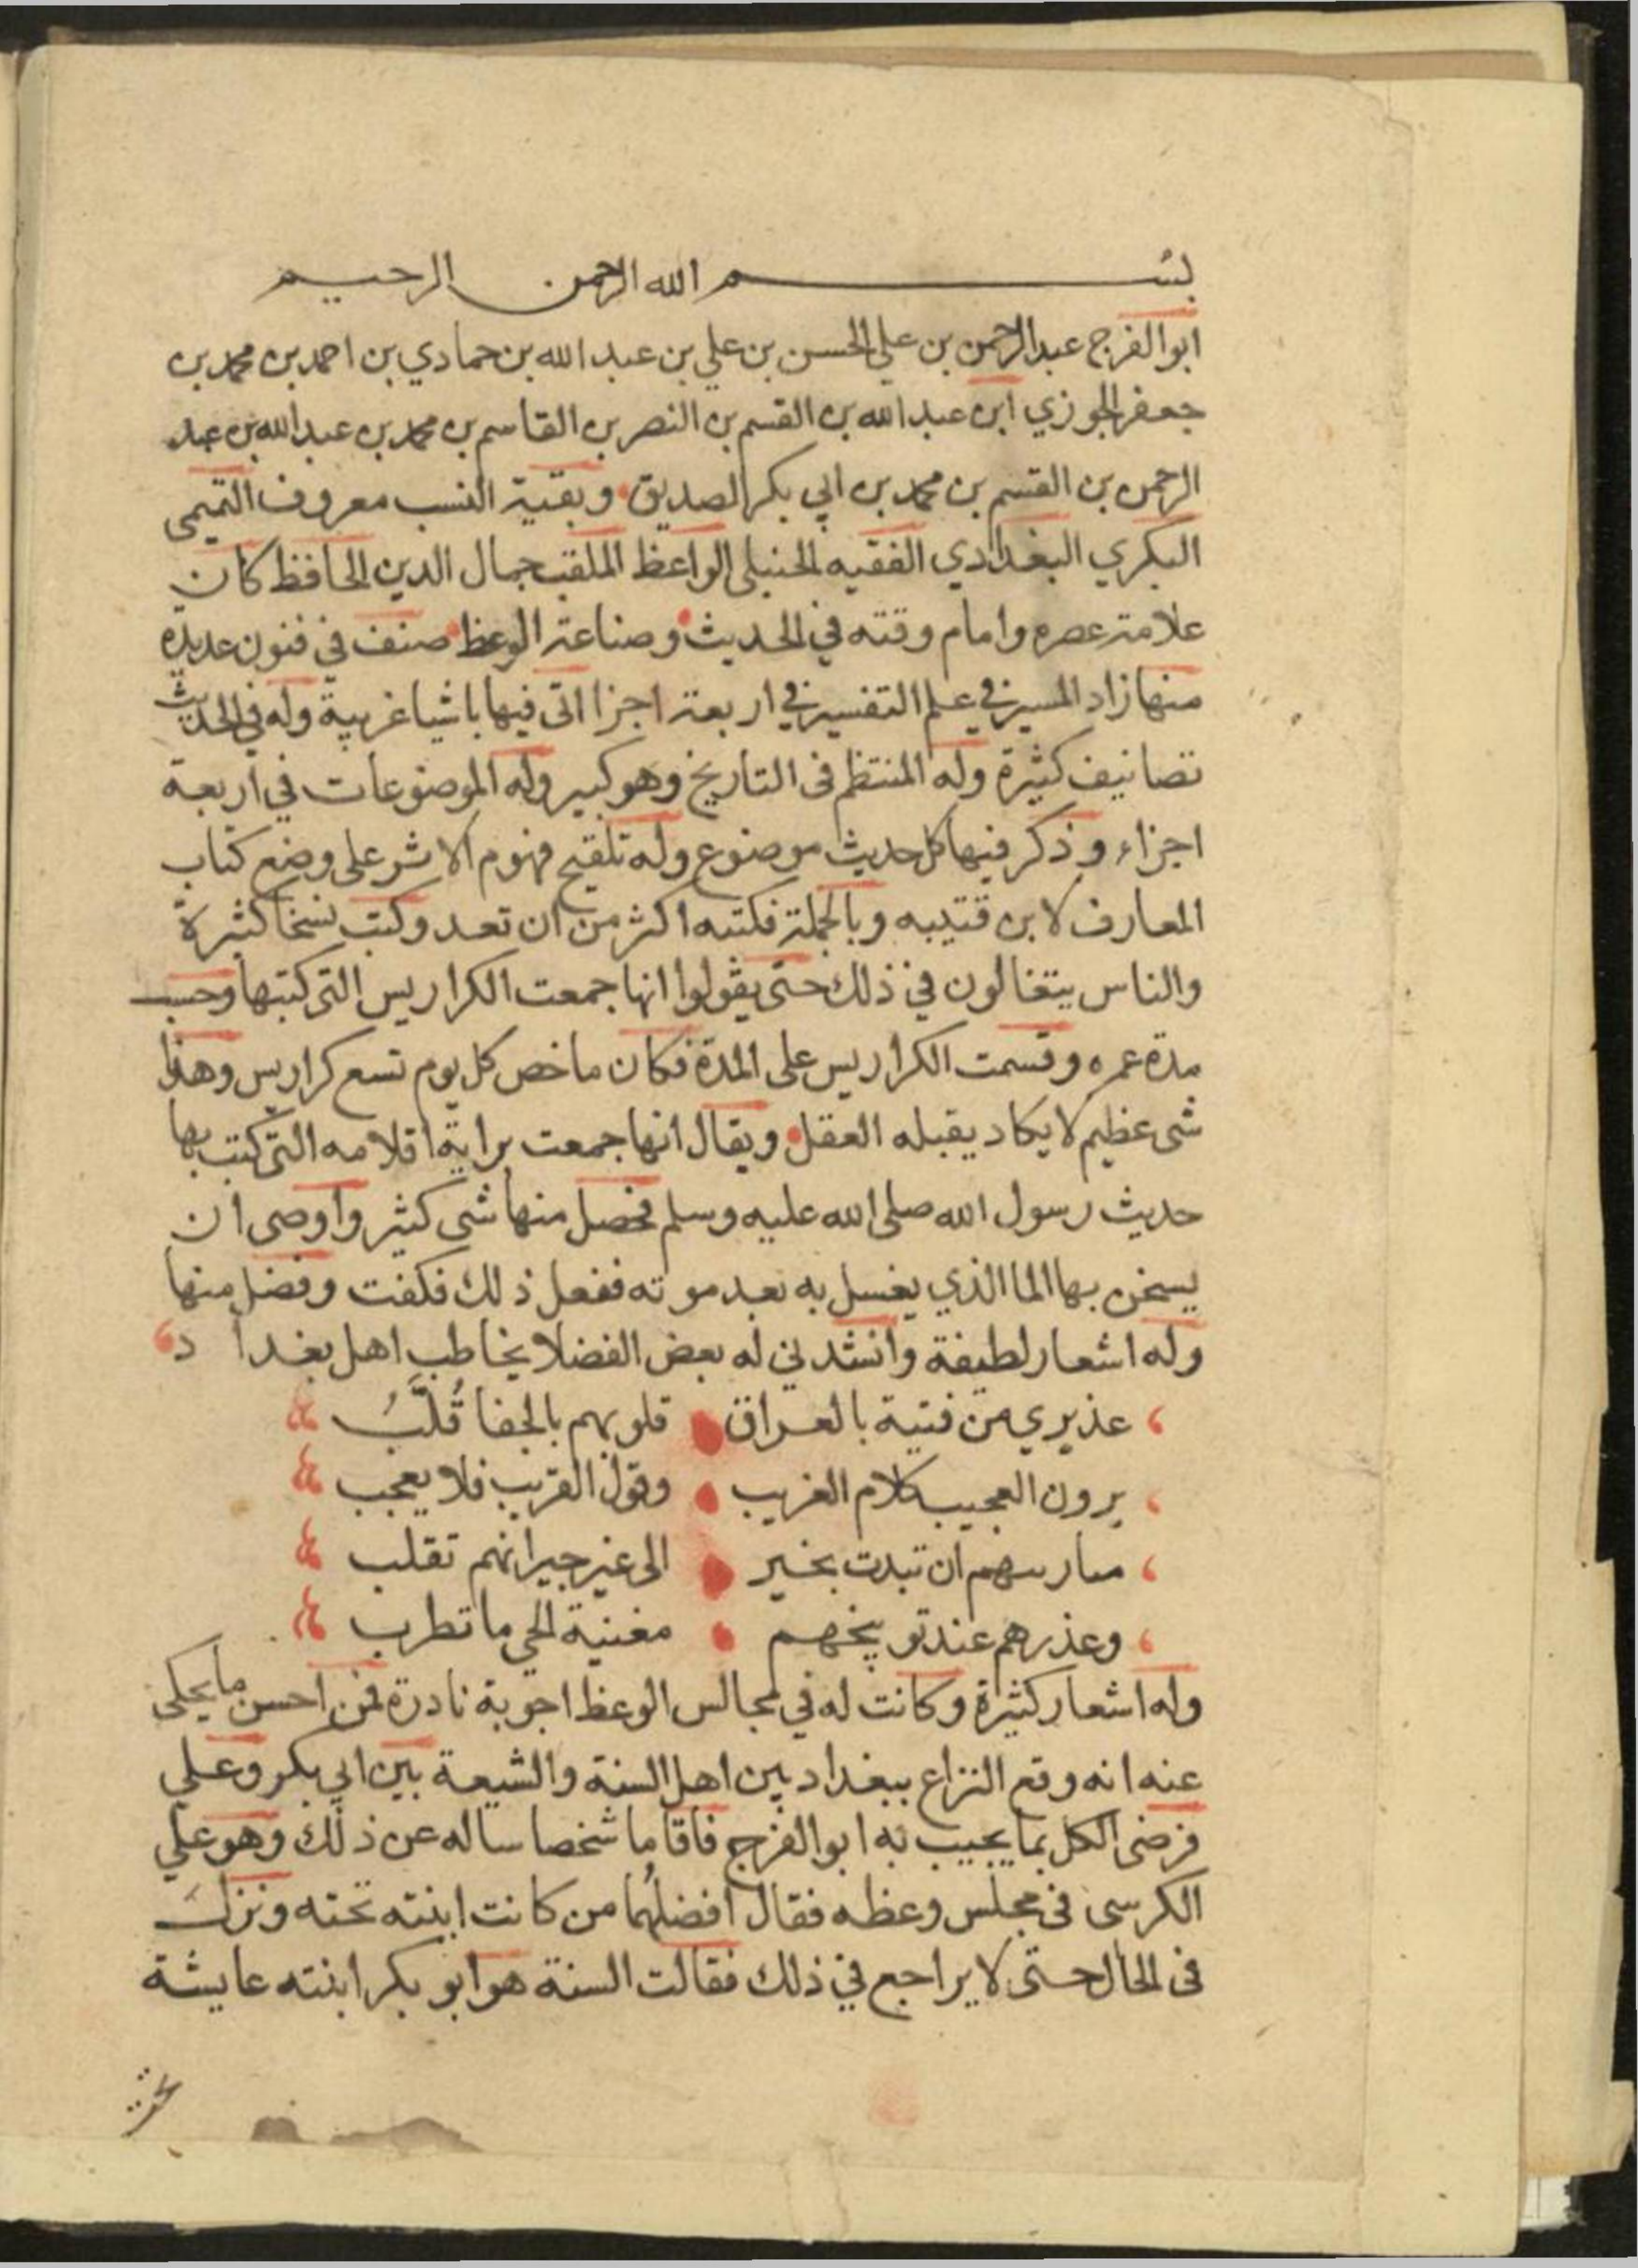 بسم الله الرحمن الرحيم
ابو الفرج عبد الرحمن بن علي الحسن بن علي بن عبد الله بن حمادي بن احمد بن محمد بن
جعفر الجوزي ابن عبد الله بن القسم بن النصر بن القاسم بن محمد بن عبد الله بن عبد
الرحمن بن القسم بن محمد بن ابي بكر الصديق وبقية النسب معروف التميمى
البكري البغدادي الفقيه الحنبلى الواعظ الملقب جمال الدين الحافظ كان
علامة عصره وامام وقته في الحديث وصناعة الوعظ صنف في فنون عديدة
منها زاد المسير في علم التفسير في اربعة اجزا اتى فيها باشيا غريبة وله في الحديث
تصانيف كثيرة وله المنتظم فى التاريخ وهو كبير وله الموضوعات في اربعة
اجزاء وذكر فيها كل حديث موضوع وله تلقيح فهوم الاشر على وضع كتاب
المعارف لابن قتيبه وبالجملة فكتبه اكثر من ان تعد وكتب نسخا كثيرة
والناس يتغالون في ذلك حتى يقولوا انها جمعت الكراريس التى كتبها وحسب
مدة عمره وقسمت الكراريس على المدة فكان ما خص كل يوم تسع كراريس وهذا
شى عظيم لا يكاد يقبله العقل ويقال انها جمعت براية اقلامه التى كتب بها
حديث رسول الله صلى الله عليه وسلم فحصل منها شى كثير واوصى ان
يسخن بها الما الذي يغسل به بعد موته ففعل ذلك فكفت وفضل منها
وله اشعار لطيفة وانشدني له بعض الفضلا يخاطب اهل بغداد
عذيري من فتية بالعراق قلوبهم بالجفا قُلَّبُ
يرون العجيب كلام الغريب وقول القريب فلا يعجب
ان تبدت بخير الى غير جيرانهم تقلب
وعذرهم عند توبيخهم مغنية الحي ما تطرب
وله اشعار كثيرة وكانت له في مجالس الوعظ اجوبة نادرة فمن احسن ما يحكى
عنه انه وقع النزاع ببغداد بين اهل السنة والشيعة بين ابي بكر وعلي
فرضى الكل بما يجيب به ابو الفرج فاقاما شخصا ساله عن ذلك وهو علي
الكرسى فى مجلس وعظه فقال افضلهما من كانت ابنته تحته ونزل
فى الحال حتى لا يراجع في ذلك فقالت السنة هو ابو بكر ابنته عايشة